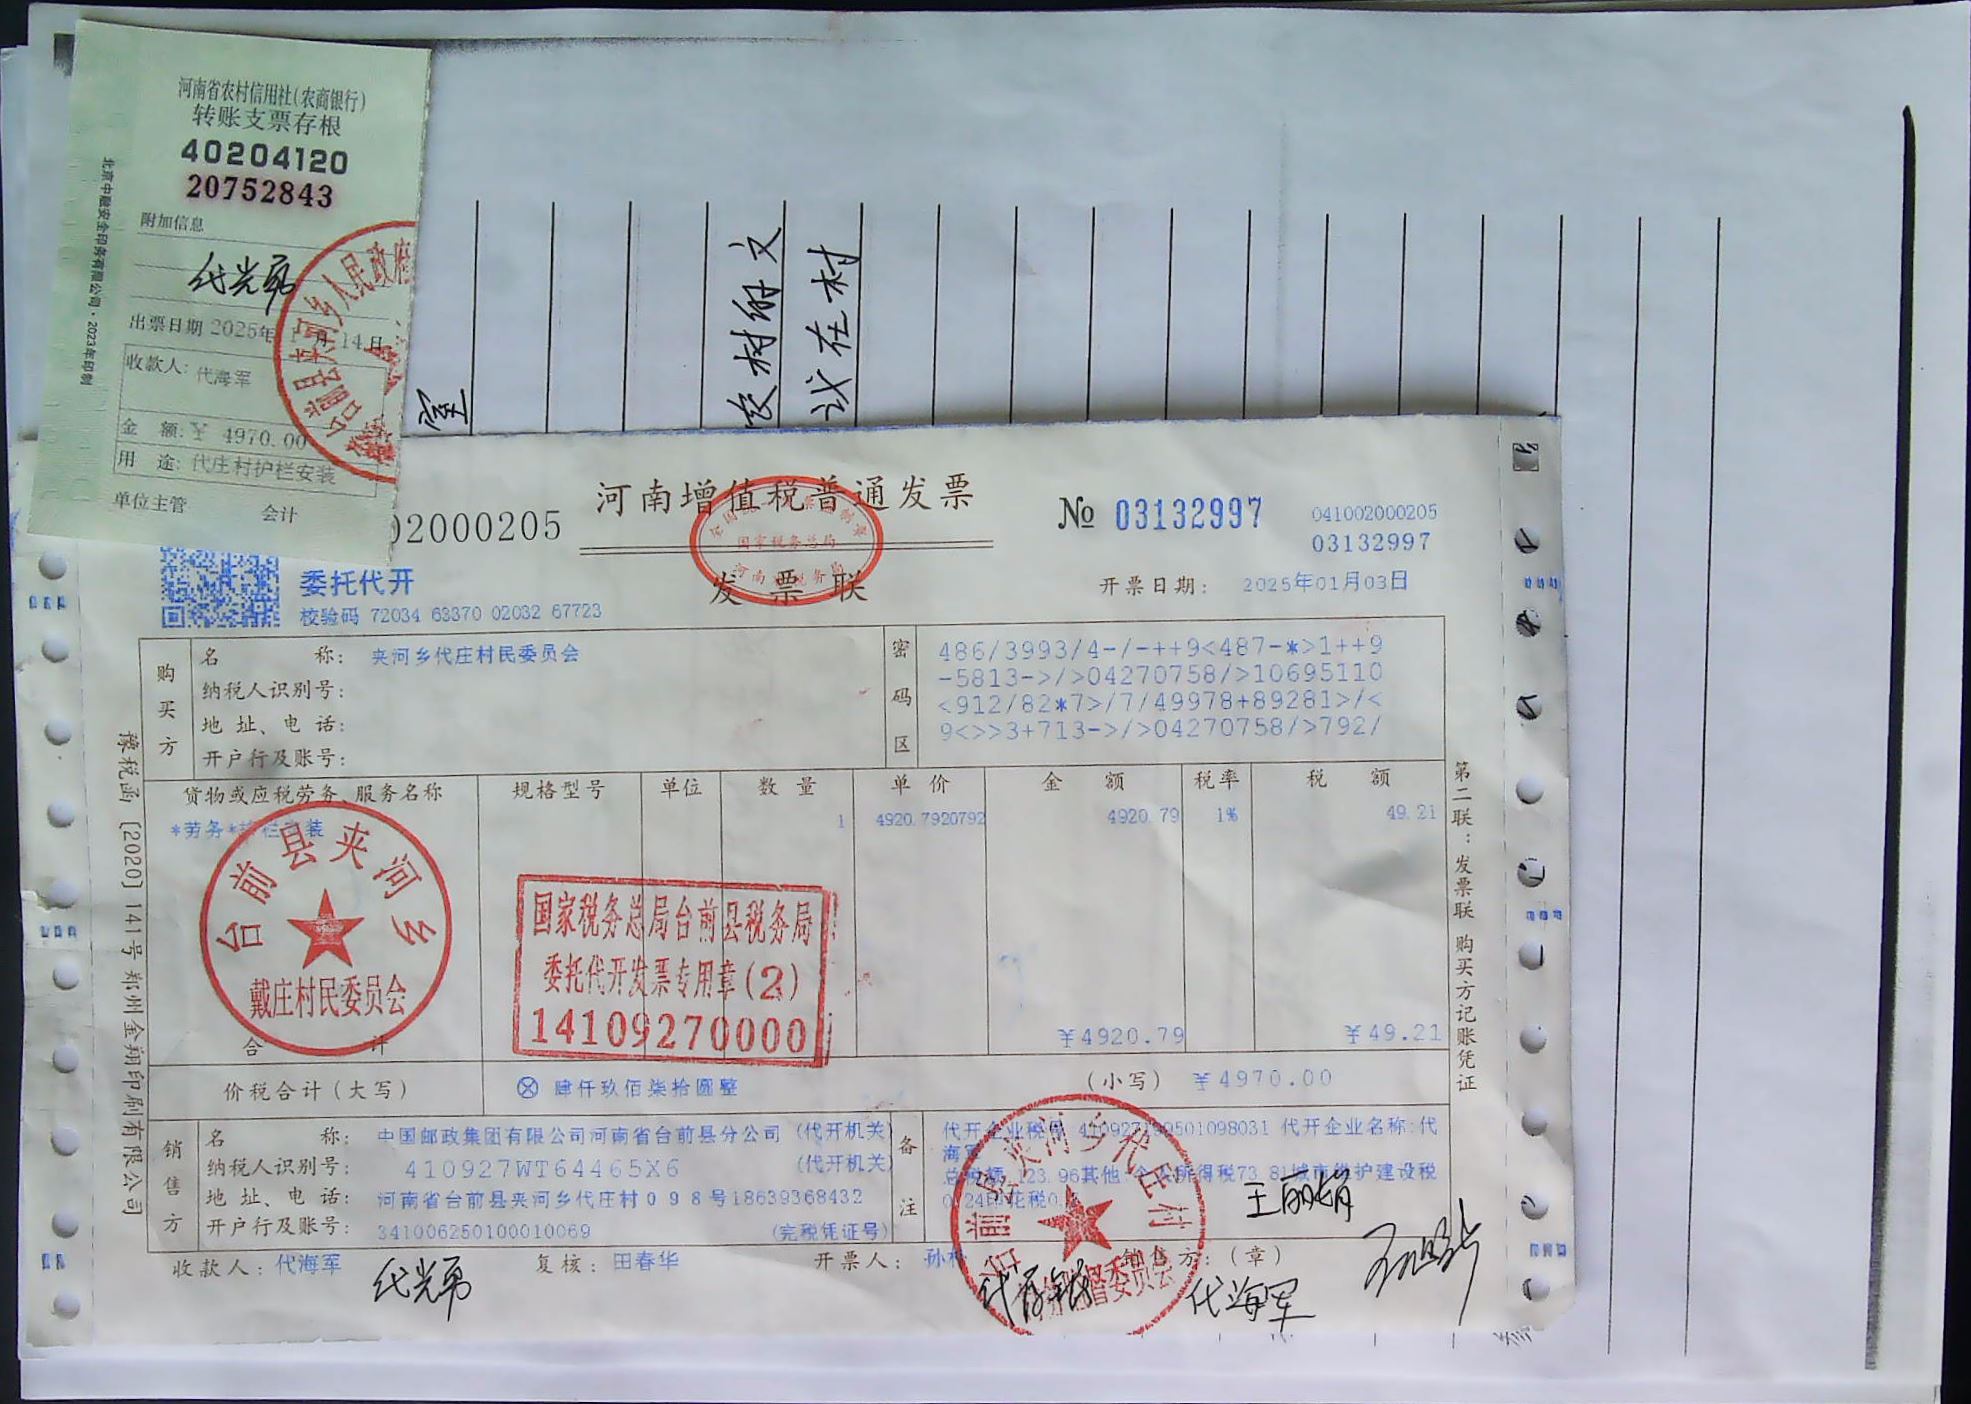 河南省农村信用社(农商银行)
转账支票存根
40204120
20752843
附加信息
代光勇
出票日期 2025年1月14日
收款人: 代海军
金 额: ¥ 4970.00
用 途: 代庄村护栏安装
单位主管 会计
北京中融安全印务有限公司·2023年印制
台前县夹河乡人民政府
室
农村的文
议在村
02000205
河南增值税普通发票
发票联
国家税务总局
№ 03132997
041002000205
03132997
开票日期: 2025年01月03日
委托代开
校验码 72034 63370 02032 67723
购买方
名 称: 夹河乡代庄村民委员会
纳税人识别号:
地址、电话:
开户行及账号:
密码区
486/3993/4-/-++9<487-*>1++9
-5813->/>04270758/>10695110
<912/82*7>/7/49978+89281>/<
9<>>3+713->/>04270758/>792/
货物或应税劳务、服务名称 规格型号 单位 数 量 单 价 金 额 税率 税 额
*劳务*护栏安装 1 4920.7920792 4920.79 1% 49.21
台前县夹河乡
戴庄村民委员会
国家税务总局台前县税务局
委托代开发票专用章(2)
14109270000
合 计 ¥4920.79 ¥49.21
价税合计(大写) ⊗ 肆仟玖佰柒拾圆整 (小写) ¥4970.00
销售方
名 称: 中国邮政集团有限公司河南省台前县分公司 (代开机关)
纳税人识别号: 410927WT64465X6 (代开机关)
地址、电话: 河南省台前县夹河乡代庄村098号18639368432
开户行及账号: 341006250100010069 (完税凭证号)
备注
代开企业税号 代开企业名称:代
海军
总税额 123.96其他:个人所得税73.81城市维护建设税
收款人: 代海军 复核: 田春华 开票人: 销售方:(章)
代光勇
代海军
王丽娟
豫税函〔2020〕141号 郑州金翔印刷有限公司
第二联:发票联 购买方记账凭证